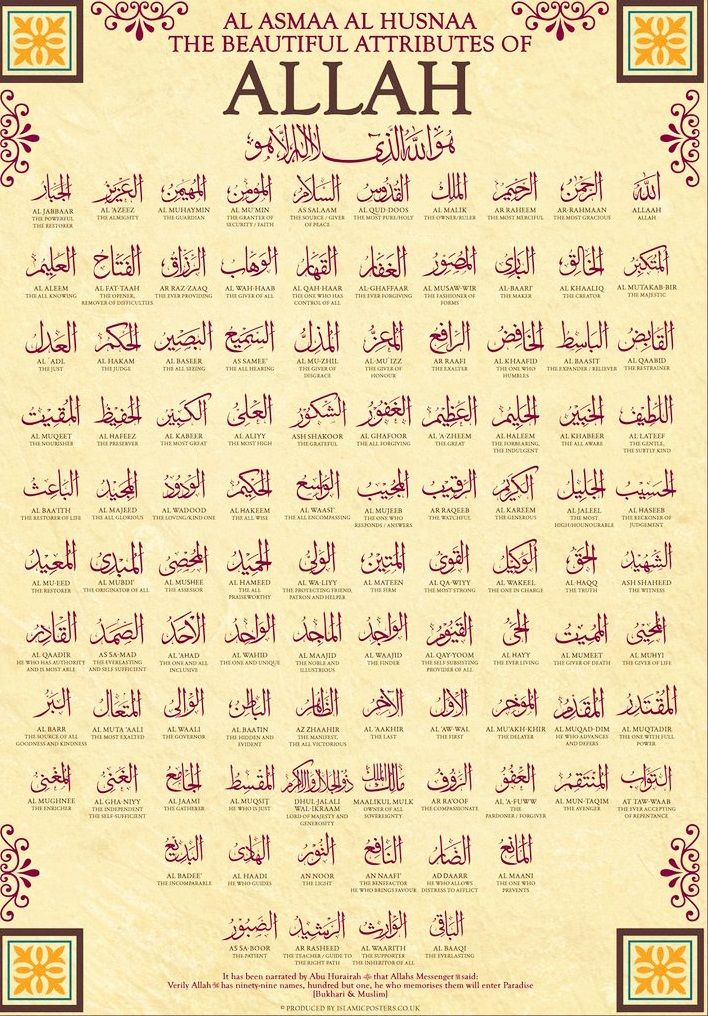 AL ASMAA AL HUSNAA
THE BEAUTIFUL ATTRIBUTES OF
ALLAH
هُوَ اللهُ الَّذِي لَا إِلَهَ إِلَّا هُوَ
الله
ALLAAH
ALLAH
الرحمن
AR-RAHMAAN
THE MOST GRACIOUS
الرحيم
AR RAHEEM
THE MOST MERCIFUL
الملك
AL MALIK
THE OWNER/RULER
القدوس
AL QUD-DOOS
THE MOST PURE/HOLY
السلام
AS SALAAM
THE SOURCE / GIVER
OF PEACE
المؤمن
AL MU'MIN
THE GRANTER OF
SECURITY / FAITH
المهيمن
AL MUHAYMIN
THE GUARDIAN
العزيز
AL 'AZEEZ
THE ALMIGHTY
الجبار
AL JABBAAR
THE POWERFUL
THE RESTORER
المتكبر
AL MUTAKAB-BIR
THE MAJESTIC
الخالق
AL KHAALIQ
THE CREATOR
البارئ
AL-BAARI'
THE MAKER
المصور
AL MUSAW-WIR
THE FASHIONER OF
FORMS
الغفار
AL-GHAFFAAR
THE EVER FORGIVING
القهار
AL QAH-HAAR
THE ONE WHO HAS
CONTROL OF ALL
الوهاب
AL WAH-HAAB
THE GIVER OF ALL
الرزاق
AR RAZ-ZAAQ
THE EVER PROVIDING
الفتاح
AL FAT-TAAH
THE OPENER,
REMOVER OF DIFFICULTIES
العليم
AL ALEEM
THE ALL KNOWING
القابض
AL QAABID
THE RESTRAINER
الباسط
AL BAASIT
THE EXPANDER / RELIEVER
الخافض
AL KHAAFID
THE ONE WHO
HUMBLES
الرافع
AR RAAFI
THE EXALTER
المعز
AL-MU'IZZ
THE GIVER OF
HONOUR
المذل
AL MU-ZHIL
THE GIVER OF
DISGRACE
السميع
AS SAMEE'
THE ALL HEARING
البصير
AL BASEER
THE ALL SEEING
الحكم
AL HAKAM
THE JUDGE
العدل
AL `ADL
THE JUST
اللطيف
AL LATEEF
THE GENTLE,
THE SUBTLY KIND
الخبير
AL KHABEER
THE ALL AWARE
الحليم
AL HALEEM
THE FORBEARING,
THE INDULGENT
العظيم
AL 'A'ZHEEM
THE GREAT
الغفور
AL GHAFOOR
THE ALL FORGIVING
الشكور
ASH SHAKOOR
THE GRATEFUL
العلي
AL ALIYY
THE MOST HIGH
الكبير
AL KABEER
THE MOST GREAT
الحفيظ
AL HAFEEZ
THE PRESERVER
المقيت
AL MUQEET
THE NOURISHER
الحسيب
AL HASEEB
THE RECKONER OF
JUDGEMENT
الجليل
AL JALEEL
THE MOST
HIGH/HOUNOURABLE
الكريم
AL KAREEM
THE GENEROUS
الرقيب
AR RAQEEB
THE WATCHFUL
المجيب
AL MUJEEB
THE ONE WHO
RESPONDS / ANSWERS
الواسع
AL WAASI'
THE ALL ENCOMPASSING
الحكيم
AL HAKEEM
THE ALL WISE
الودود
AL WADOOD
THE LOVING/KIND ONE
المجيد
AL MAJEED
THE ALL GLORIOUS
الباعث
AL BAA'ITH
THE RESTORER OF LIFE
الشهيد
ASH SHAHEED
THE WITNESS
الحق
AL-HAQQ
THE TRUTH
الوكيل
AL WAKEEL
THE ONE IN CHARGE
القوي
AL QA-WIYY
THE MOST STRONG
المتين
AL MATEEN
THE FIRM
الولي
AL WA-LIYY
THE PROTECTING FRIEND,
PATRON AND HELPER
الحميد
AL HAMEED
THE ALL
PRAISEWORTHY
المحصي
AL MUSHEE
THE ASSESSOR
المبدئ
AL MUBDI'
THE ORIGINATOR OF ALL
المعيد
AL MU-EED
THE RESTORER
المحيي
AL MUHYI
THE GIVER OF LIFE
المميت
AL MUMEET
THE GIVER OF DEATH
الحي
AL HAYY
THE EVER LIVING
القيوم
AL QAY-YOOM
THE SELF SUBSISTING
PROVIDER OF ALL
الواجد
AL WAAJID
THE FINDER
الماجد
AL MAAJID
THE NOBLE AND
ILLUSTRIOUS
الواحد
AL WAHID
THE ONE AND UNIQUE
الأحد
AL 'AHAD
THE ONE AND ALL
INCLUSIVE
الصمد
AS SA-MAD
THE EVERLASTING
AND SELF SUFFICIENT
القادر
AL QAADIR
HE WHO HAS AUTHORITY
AND IS MOST ABLE
المقتدر
AL MUQTADIR
THE ONE WITH FULL
POWER
المقدم
AL MUQAD-DIM
HE WHO ADVANCES
AND DEFERS
المؤخر
AL MU'AKH-KHIR
THE DELAYER
الأول
AL 'AW-WAL
THE FIRST
الآخر
AL 'AAKHIR
THE LAST
الظاهر
AZ ZHAAHIR
THE MANIFEST,
THE ALL VICTORIOUS
الباطن
AL BAATIN
THE HIDDEN AND
EVIDENT
الوالي
AL WAALI
THE GOVERNOR
المتعال
AL MUTA 'AALI
THE MOST EXALTED
البر
AL BARR
THE SOURCE OF ALL
GOODNESS AND KINDNESS
التواب
AT TAW-WAAB
THE EVER ACCEPTING
OF REPENTANCE
المنتقم
AL MUN-TAQIM
THE AVENGER
العفو
AL 'A-FUWW
THE
PARDONER / FORGIVER
الرؤوف
AR RA'OOF
THE COMPASSIONATE
مالك الملك
MAALIKUL MULK
OWNER OF ALL
SOVEREIGNTY
ذو الجلال والإكرام
DHUL-JALALI
WAL-IKRAAM
LORD OF MAJESTY AND
GENEROSITY
المقسط
AL MUQSIT
HE WHO IS JUST
الجامع
AL JAAMI
THE GATHERER
الغني
AL GHA-NIYY
THE INDEPENDENT
THE SELF-SUFFICIENT
المغني
AL MUGHNEE
THE ENRICHER
المانع
AL MAANI
THE ONE WHO
PREVENTS
الضار
AD DAARR
HE WHO ALLOWS
DISTRESS TO AFFLICT
النافع
AN NAAFI'
THE BENEFACTOR
HE WHO BRINGS FAVOUR
النور
AN NOOR
THE LIGHT
الهادي
AL HAADI
HE WHO GUIDES
البديع
AL BADEE'
THE INCOMPARABLE
الباقي
AL BAAQI
THE EVERLASTING
الوارث
AL WAARITH
THE SUPPORTER
THE INHERITOR OF ALL
الرشيد
AR RASHEED
THE TEACHER / GUIDE TO
THE RIGHT PATH
الصبور
AS SA-BOOR
THE PATIENT
It has been narrated by Abu Hurairah that Allahs Messenger ﷺ said:
Verily Allah has ninety-nine names, hundred but one, he who memorises them will enter Paradise
[Bukhari & Muslim]
© PRODUCED BY ISLAMICPOSTERS.CO.UK